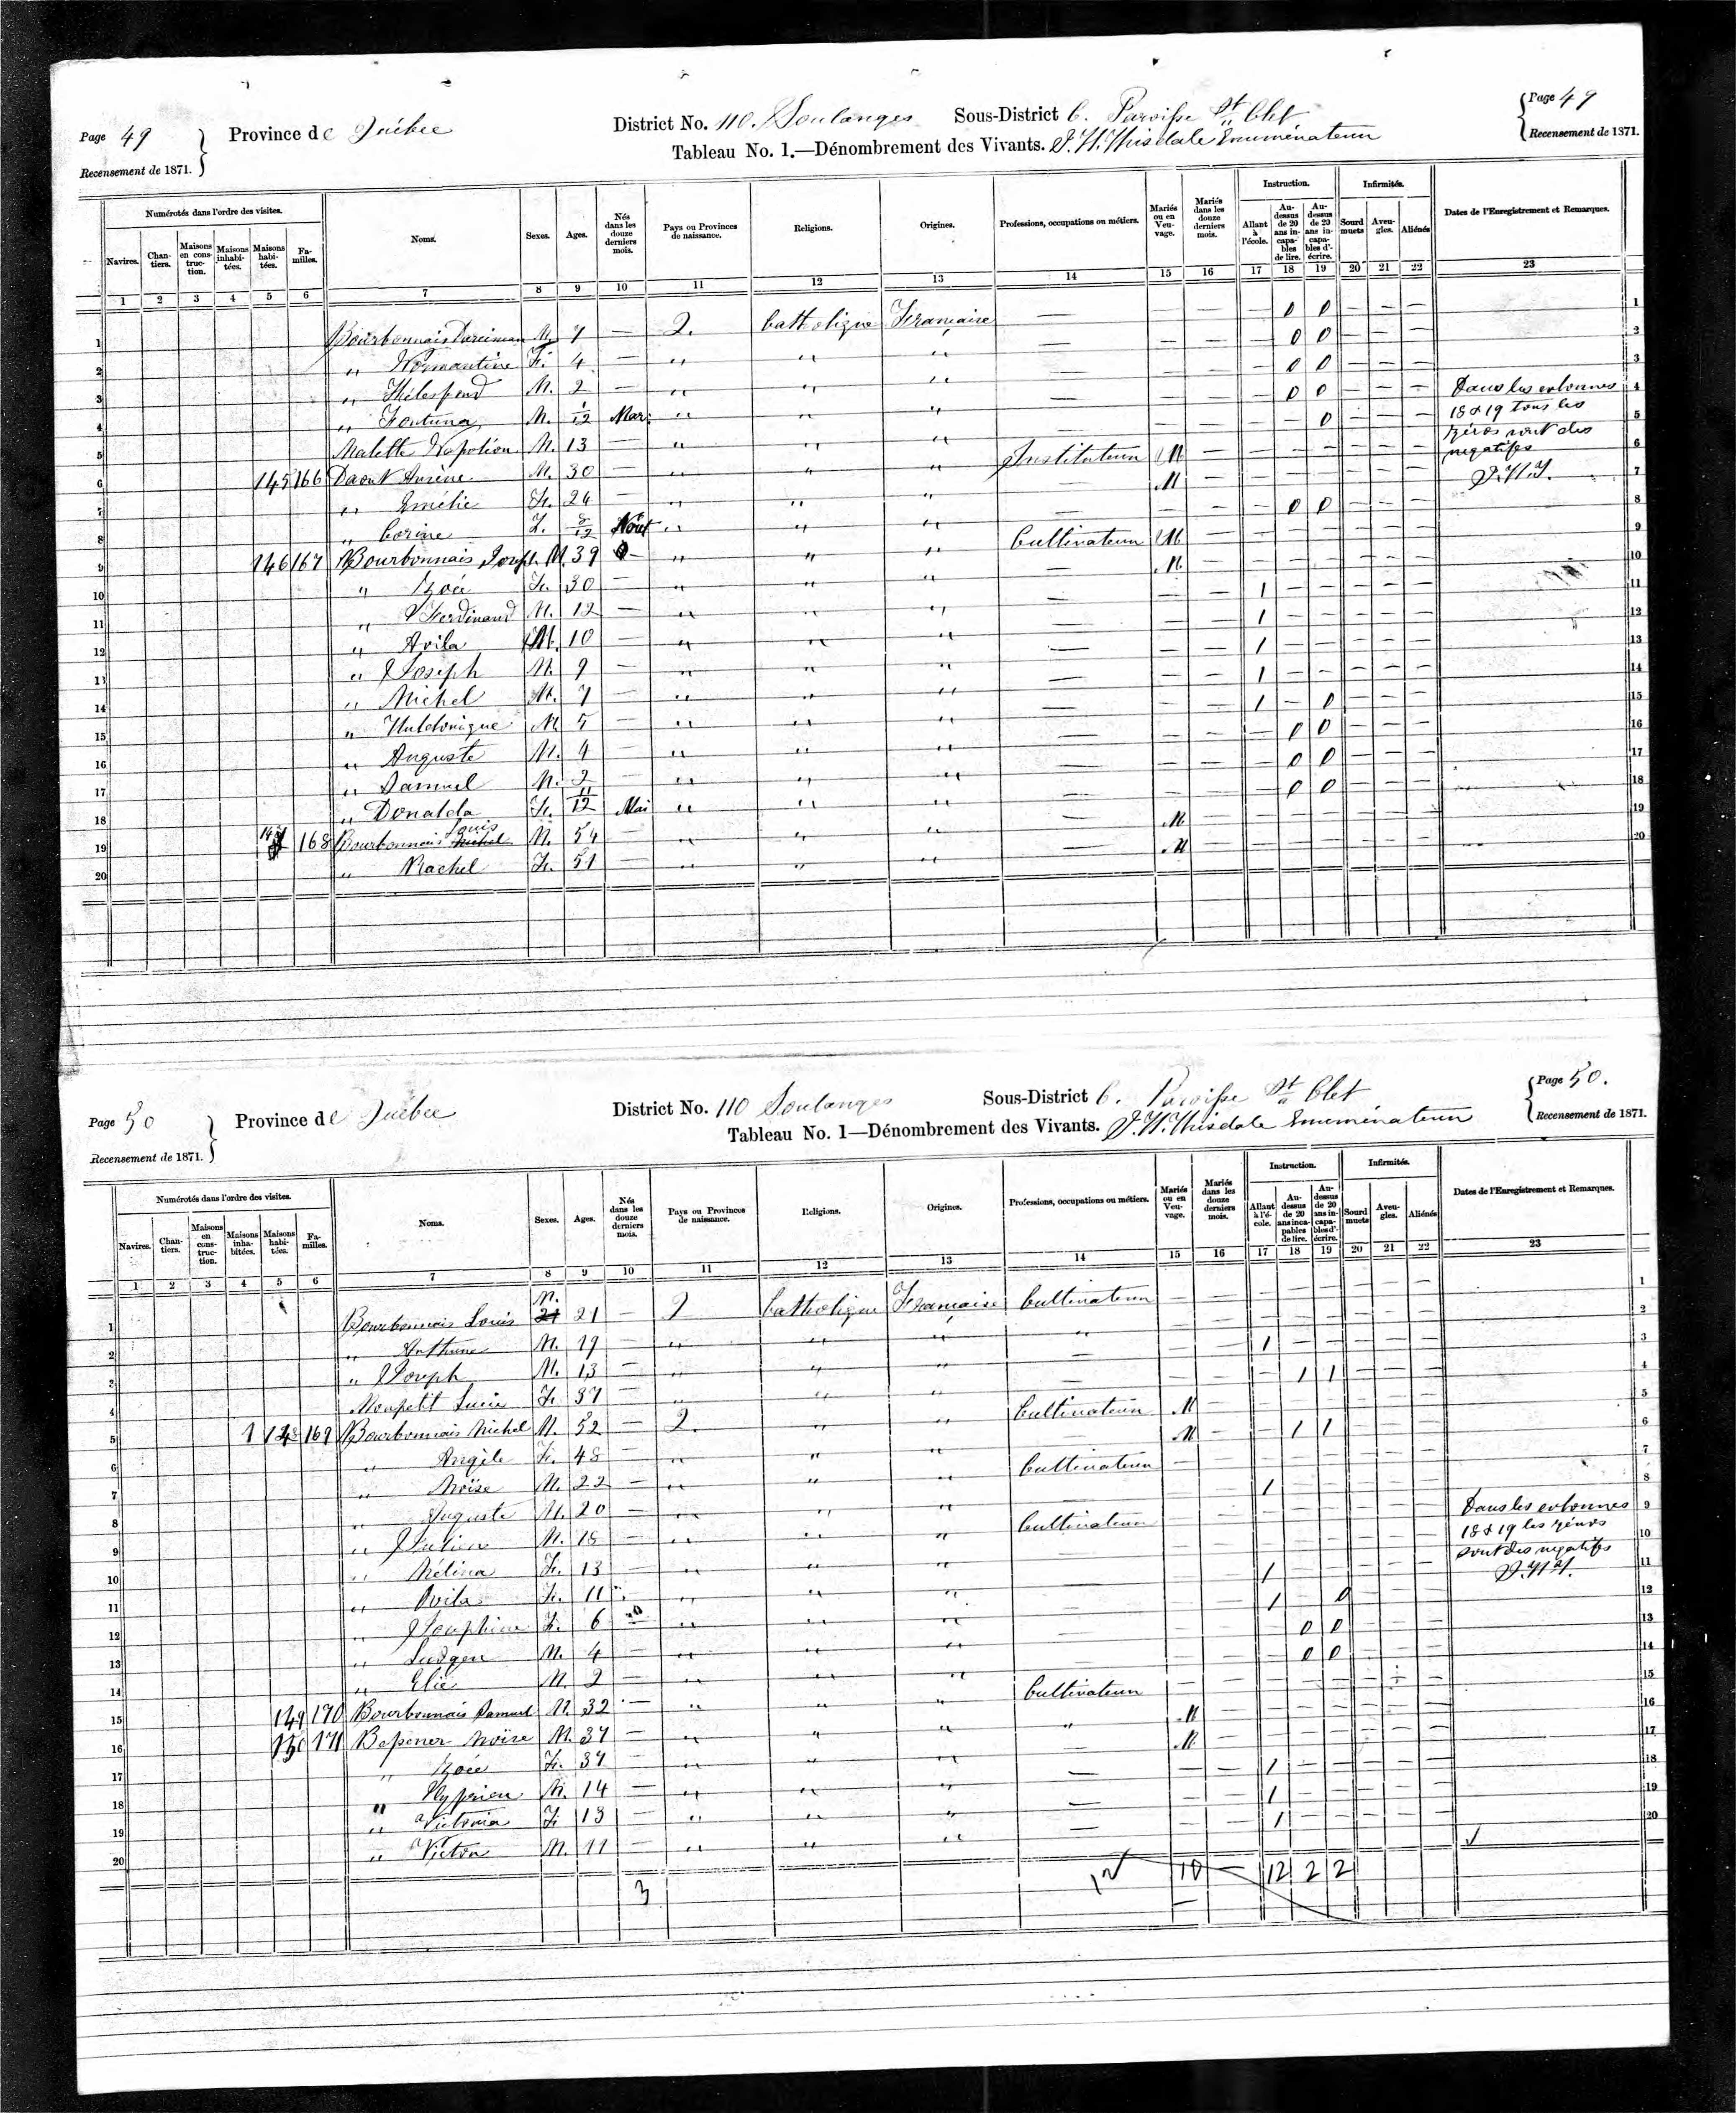 Page 49
Recensement de 1871.
Province de Québec
District No. 110. Soulanges Sous-District C. Paroisse St Clet
Tableau No. 1.—Dénombrement des Vivants. Enuménateur
Page 49
Recensement de 1871.
Numérotés dans l'ordre des visites. Noms. Sexes. Ages. Nés dans les douze derniers mois. Pays ou Provinces de naissance. Religions. Origines. Professions, occupations ou métiers. Mariés ou en Veuvage. Mariés dans les douze derniers mois. Instruction. Infirmités. Dates de l'Enregistrement et Remarques.
Navires. Chantiers. Maisons en construction. Maisons inhabitées. Maisons habitées. Familles. Allant à l'école. Au-dessus de 20 ans incapables de lire. Au-dessus de 20 ans incapables d'écrire. Sourd muets Aveugles. Aliénés
1 2 3 4 5 6 7 8 9 10 11 12 13 14 15 16 17 18 19 20 21 22 23
1 Bourbonnais M. 7 — 2. Catholique Française — — — — 0 0 — — — 1
2 " F. 4 — " " " — — — — 0 0 — — — 2
3 " M. 2 — " " " — — — — 0 0 — — — 3
4 " Fortuna M. 1/12 Mar. " " " — — — — 0 0 — — — Dans les colonnes 4
5 Malette Napoléon M. 13 — " " " — — — — — 0 — — — 18 & 19 tous les 5
zéros sont des
6 145 166 Daoust M. 30 — " " " Instituteur M — — — — — — — négatifs 6
7 " Emélie F. 24 — " " " — M — — — — — — — 7
8 " Corine F. 8/12 Août " " " — — — — 0 0 — — — 8
9 146 167 Bourbonnais Joseph M. 39 — " " " Cultivateur M — — — — — — — 9
10 " Zoé F. 30 — " " " — M — — — — — — — 10
11 " Ferdinand M. 12 — " " " — — — 1 — — — — — 11
12 " Avila M. 10 — " " " — — — 1 — — — — — 12
13 " Joseph M. 9 — " " " — — — 1 — — — — — 13
14 " Michel M. 7 — " " " — — — 1 — — — — — 14
15 " M 5 — " " " — — — 1 — 0 — — — 15
16 " Auguste M. 4 — " " " — — — — 0 0 — — — 16
17 " Samuel M. 2 — " " " — — — — 0 0 — — — 17
18 " Donalda F. 11/12 Mai " " " — — — — 0 0 — — — 18
19 147 168 Bourbonnais Louis M. 54 — " " " M 19
20 " Rachel F. 51 — " " " M 20
Page 50
Recensement de 1871.
Province de Québec
District No. 110 Soulanges Sous-District C. Paroisse St Clet
Tableau No. 1—Dénombrement des Vivants. Enuménateur
Page 50.
Recensement de 1871.
Numérotés dans l'ordre des visites. Noms. Sexes. Ages. Nés dans les douze derniers mois. Pays ou Provinces de naissance. Religions. Origines. Professions, occupations ou métiers. Mariés ou en Veuvage. Mariés dans les douze derniers mois. Instruction. Infirmités. Dates de l'Enregistrement et Remarques.
Navires. Chantiers. Maisons en construction. Maisons inhabitées. Maisons habitées. Familles. Allant à l'école. Au-dessus de 20 ans incapables de lire. Au-dessus de 20 ans incapables d'écrire. Sourd muets Aveugles. Aliénés
1 2 3 4 5 6 7 8 9 10 11 12 13 14 15 16 17 18 19 20 21 22 23
1 Bourbonnais Louis M. 21 — 2 Catholique Française Cultivateur — — — — — — — — 1
2 " M. 19 — " " " " — — — — — — — — 2
3 " Joseph M. 13 — " " " — — — 1 — — — — — 3
4 Monpetit Lucie F. 37 — " " " — — — — 1 1 — — — 4
5 1 148 169 Bourbonnais Michel M. 52 — 2. " " Cultivateur M — — — — — — — 5
6 " Angèle F. 48 — " " " M — — 1 1 — — — 6
7 " Moïse M. 22 — " " " Cultivateur — — — — — — — — 7
8 " Auguste M. 20 — " " " — — — 1 — — — — — 8
9 " Julien M. 18 — " " " Cultivateur — — — — — — — — Dans les colonnes 9
10 " Mélina F. 13 — " " " 18 & 19 les zéros 10
11 " Avila F. 11 " " " — 1 sont des négatifs 11
12 " Josephine F. 6 " " " — 1 — 0 12
13 " Ludger M. 4 — " " " — 0 0 13
14 " Elie M. 2 — " " " — 0 0 14
15 149 170 Bourbonnais Samuel M. 32 — " " " Cultivateur — 15
16 150 171 Moïse M. 37 — " " " " M 16
17 " Zoée F. 37 — " " " — M 17
18 " M. 14 — " " " — 1 18
19 " Victoria F. 13 — " " " — 1 19
20 " Victor M. 11 — " " " — 1 20
3 10 — 12 2 2